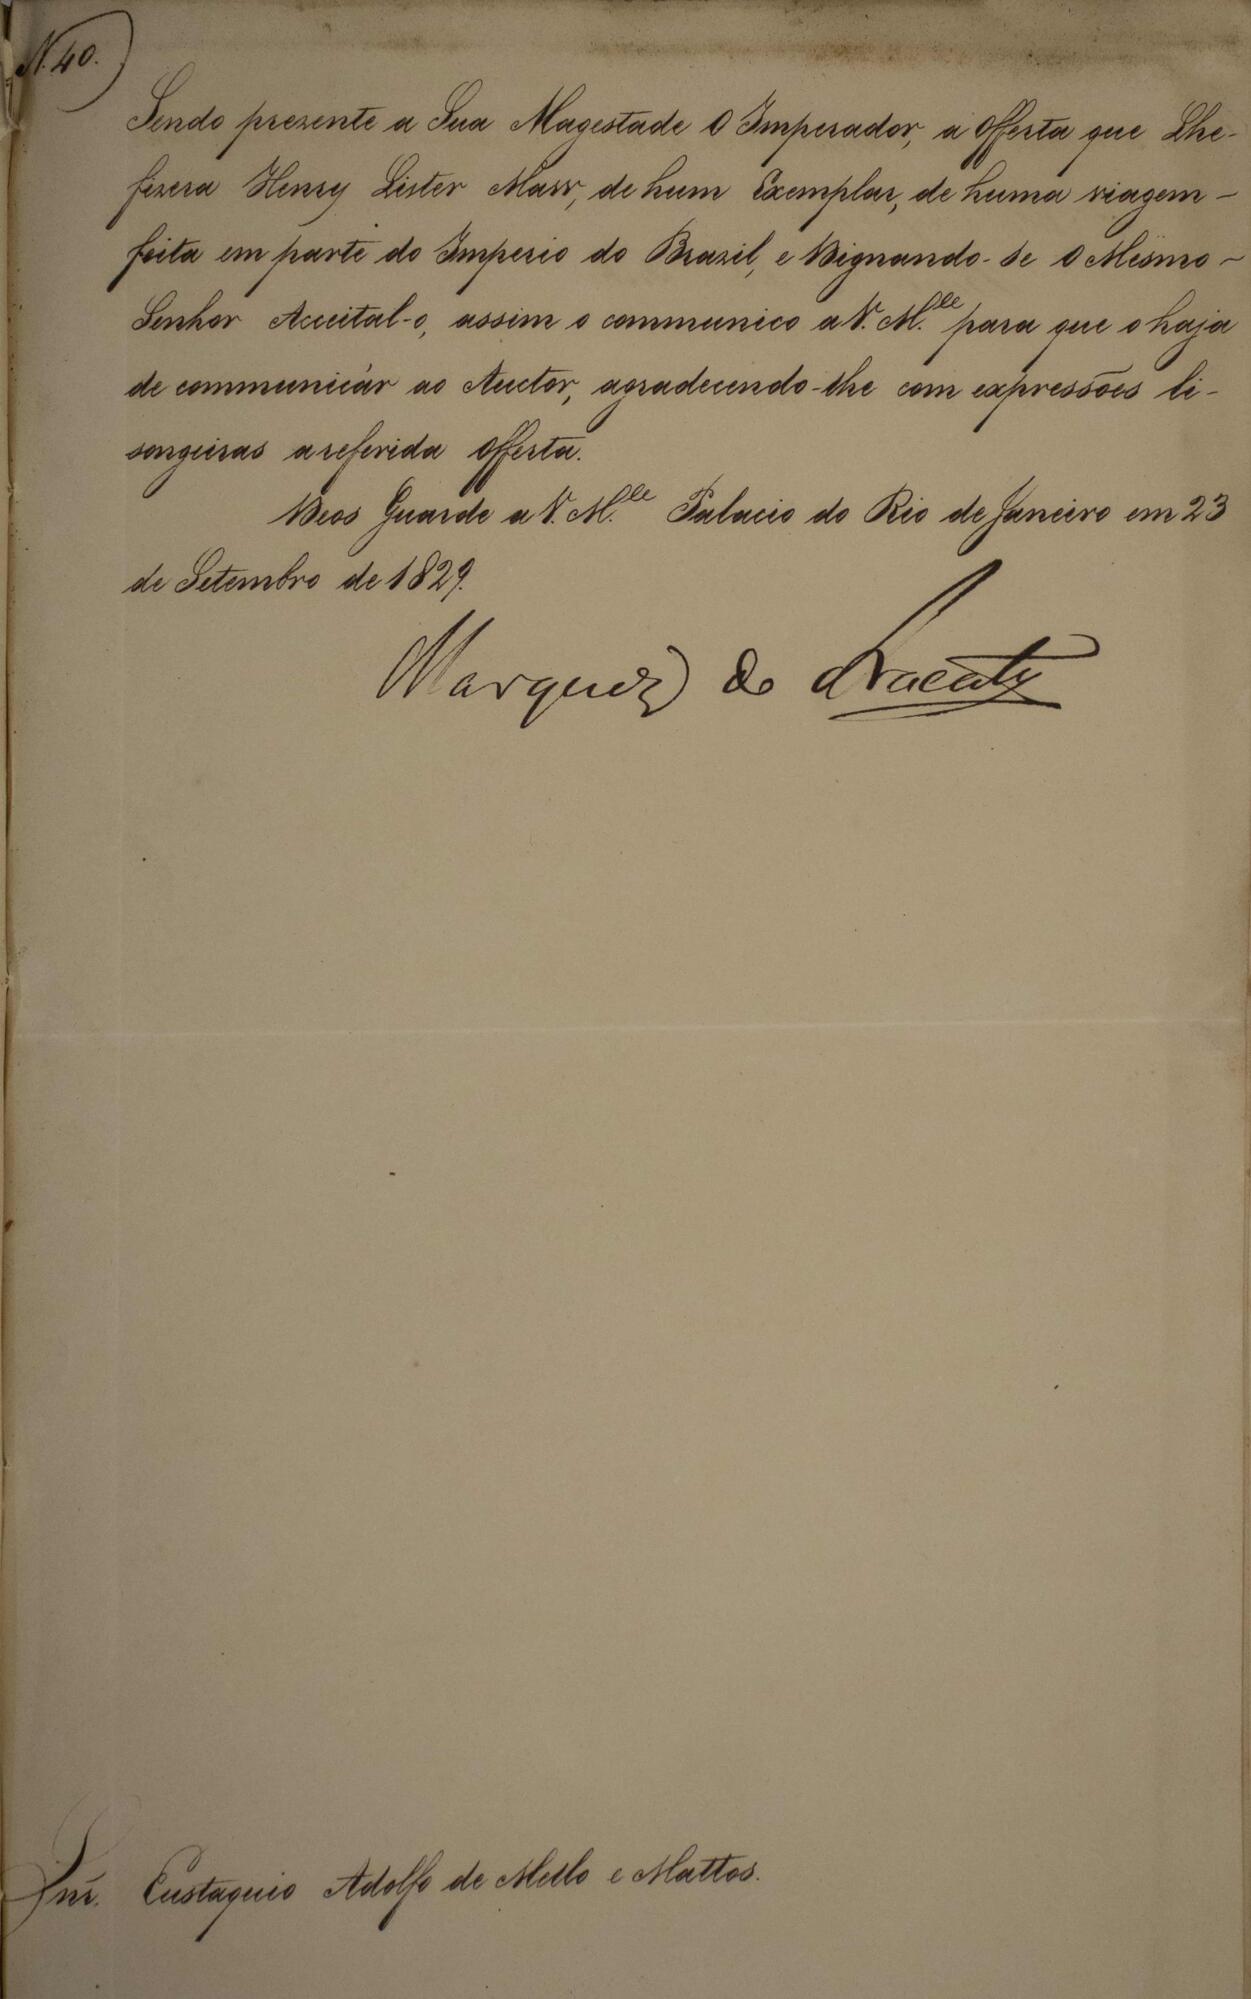 N. 40.
Sendo prezente a Sua Magestade O Imperador, a Offerta que Lhe-
fizera Henry Lister Maw, de hum Exemplar, de huma viagem -
feita em parte do Imperio do Brazil, e Dignando-se O Mesmo -
Senhor Acceital-o, assim o communico a V. M.ce para que o haja
de communicár ao Auctor, agradecendo-lhe com expressões li-
songeiras a referida Offerta.
Deos Guarde a V. M.ce Palacio do Rio de Janeiro em 23
de Setembro de 1829.
Marquez do Aracaty
Snr. Eustaquio Adolfo de Mello e Mattos.